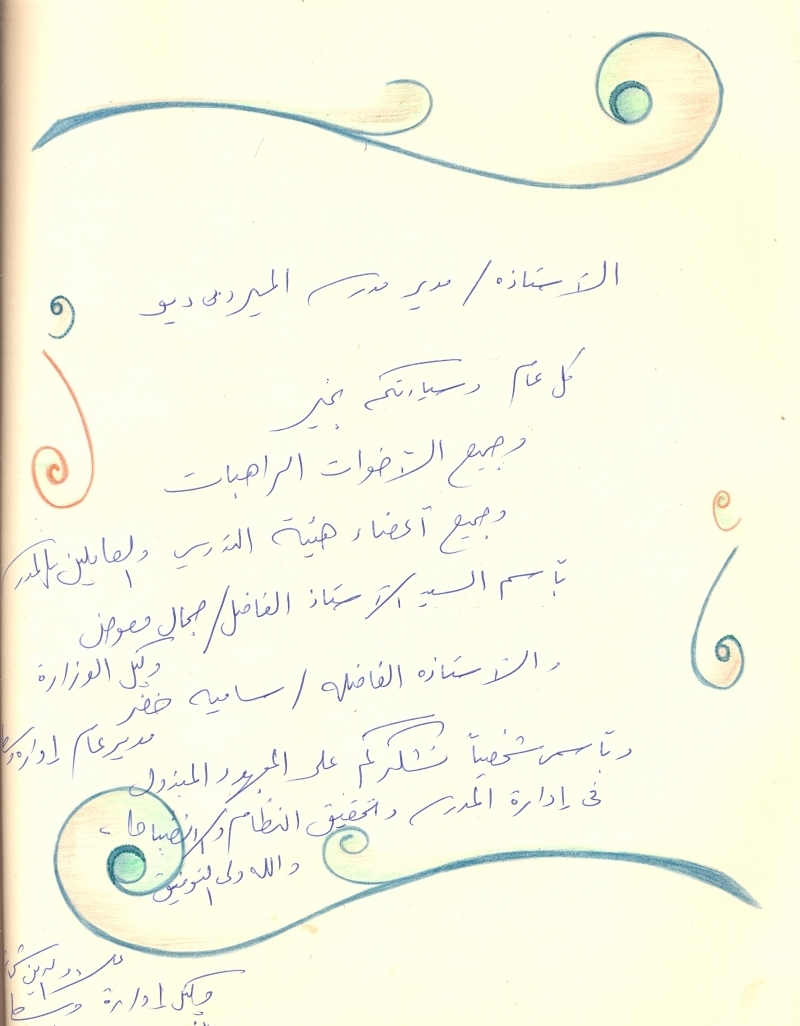 الأستاذه / مدير مدرسة الميردى ديو
كل عام وسيادتكم بخير
وجميع الأخوات الراهبات
وجميع أعضاء هيئة التدريس والعاملين بالمدر
بأسم السيد الأستاذ الفاضل / جمال معوض
وكيل الوزارة
والأستاذه الفاضله / ساميه خضر
مدير عام إدارة
وبأسمى شخصياً نشكركم على المجهود المبذول
فى إدارة المدرسه وتحقيق النظام والانضباط
والله ولى التوفيق
وكيل إدارة وسط